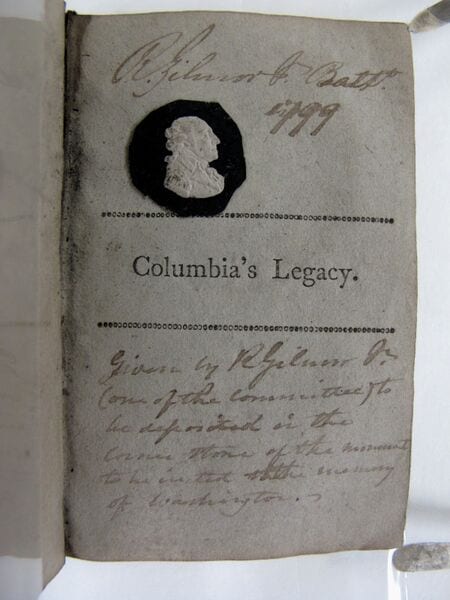 R. Gilmor Jr. Balto.
1799
Columbia's Legacy.
Given by R Gilmor Jr.
(one of the committee) to
be deposited in the
corner stone of the monument
to be erected to the memory
of Washington.